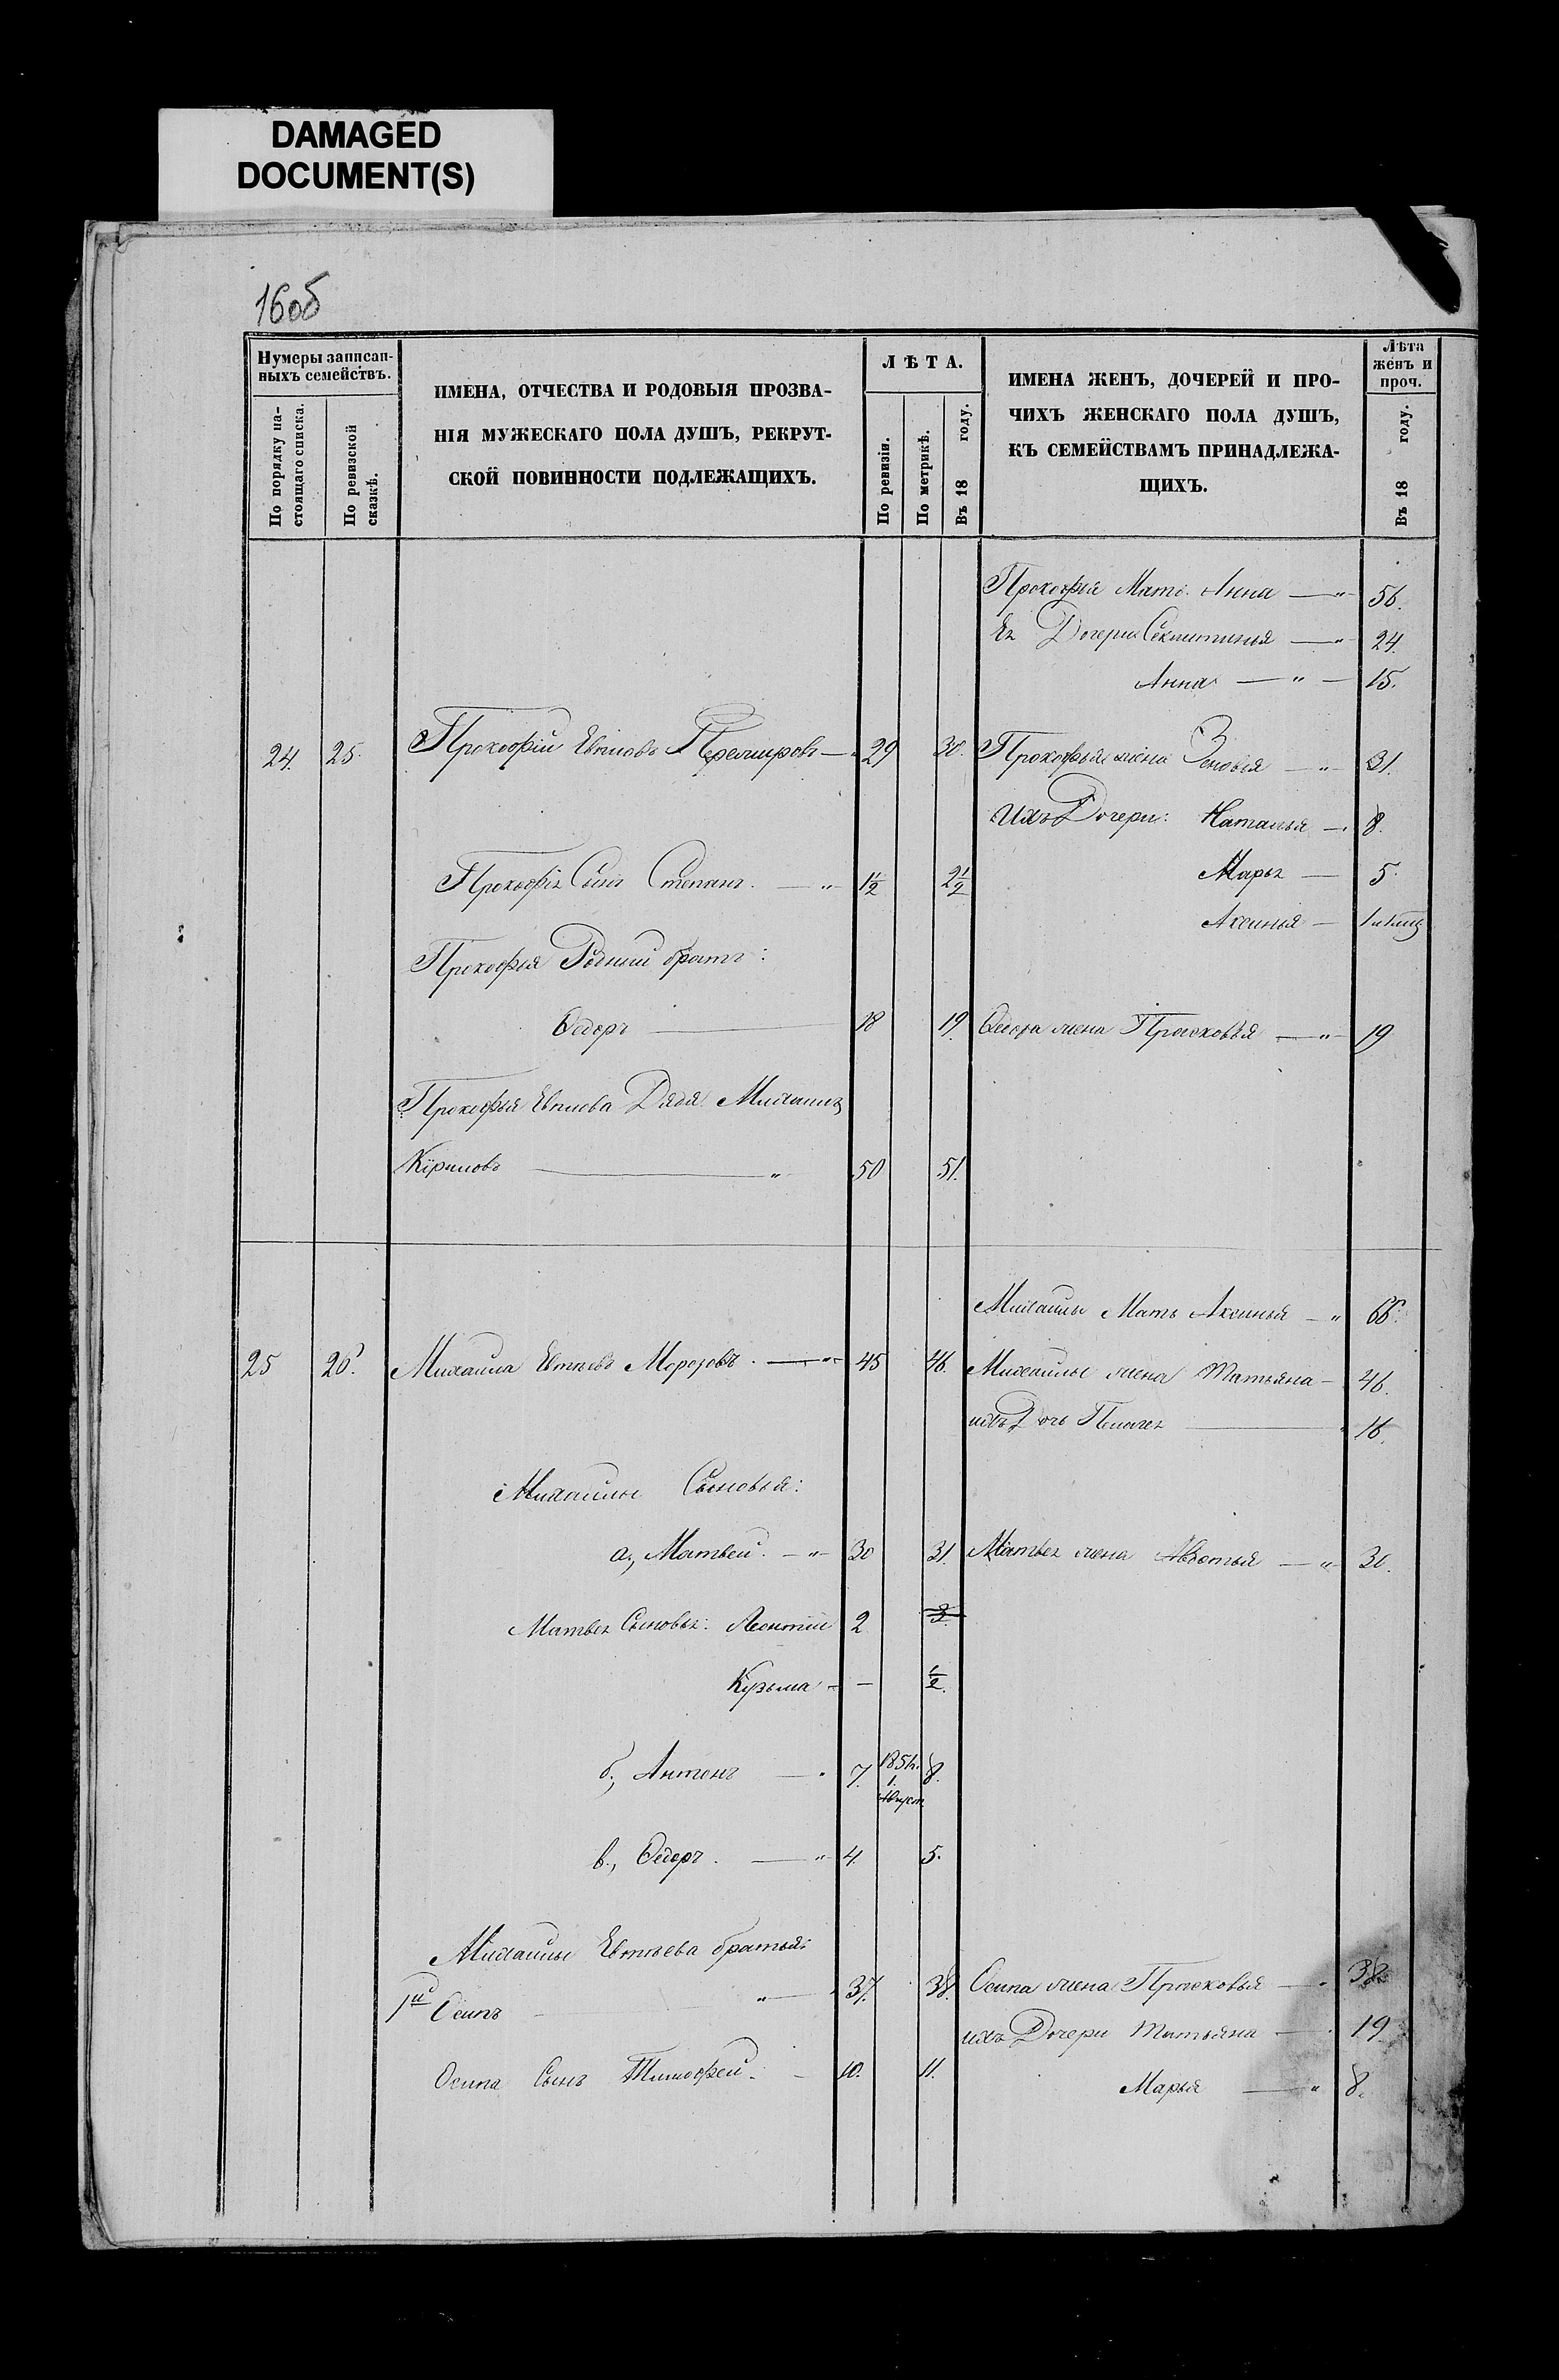 DAMAGED
DOCUMENT(S)
16об
Нумеры записан-
ныхъ семействъ.
По порядку на-
стоящаго списка.
По ревизской
сказкѣ.
ИМЕНА, ОТЧЕСТВА И РОДОВЫЯ ПРОЗВА-
НІЯ МУЖЕСКАГО ПОЛА ДУШЪ, РЕКРУТ-
СКОЙ ПОВИННОСТИ ПОДЛЕЖАЩИХЪ.
ЛѢТА.
По ревизіи.
По метрикѣ.
Въ 18 году.
ИМЕНА ЖЕНЪ, ДОЧЕРЕЙ И ПРО-
ЧИХЪ ЖЕНСКАГО ПОЛА ДУШЪ,
КЪ СЕМЕЙСТВАМЪ ПРИНАДЛЕЖА-
ЩИХЪ.
Лѣта
женъ и
проч.
Въ 18 году.
Прокофья Мать Анна — " 56.
Дочери — " 24.
Анна — " — 15.
24. 25. Прокофій — " 29 30. Прокофья жена Зеновья — " 31.
Ихъ Дочери: Наталья — 8.
Прокофія Сынъ Степанъ. — " 1½ 2½ Марья — 5.
Аксинья — 1
Прокофья Родный братъ:
Ѳедоръ — 18 19. Ѳедора жена Прасковья — " 19
Прокофья Дядя Михаилъ
Кириловъ — " 50 51.
Михайлы Мать Аксинья — " 66.
25 26. Михаила Морозовъ. — " 45 46. Михайлы жена Татьяна — 46.
ихъ Дочь Пелагея — 16.
Михайлы Сыновья:
а., Матвей. — " 30 31. Матвея жена Авдотья — " 30.
Матвея Сыновья: Леонтій 2 3.
Кузьма — ½.
б., Антонъ — " 7. 1851. 1. Август 8.
в., Ѳедоръ. — " 4. 5.
Михайлы братья:
1й Осипъ — " 37. 38. Осипа жена Прасковья — " 38
ихъ Дочери Татьяна — 19
Осипа Сынъ Тимофей. — 10. 11.
Марья — " 8.